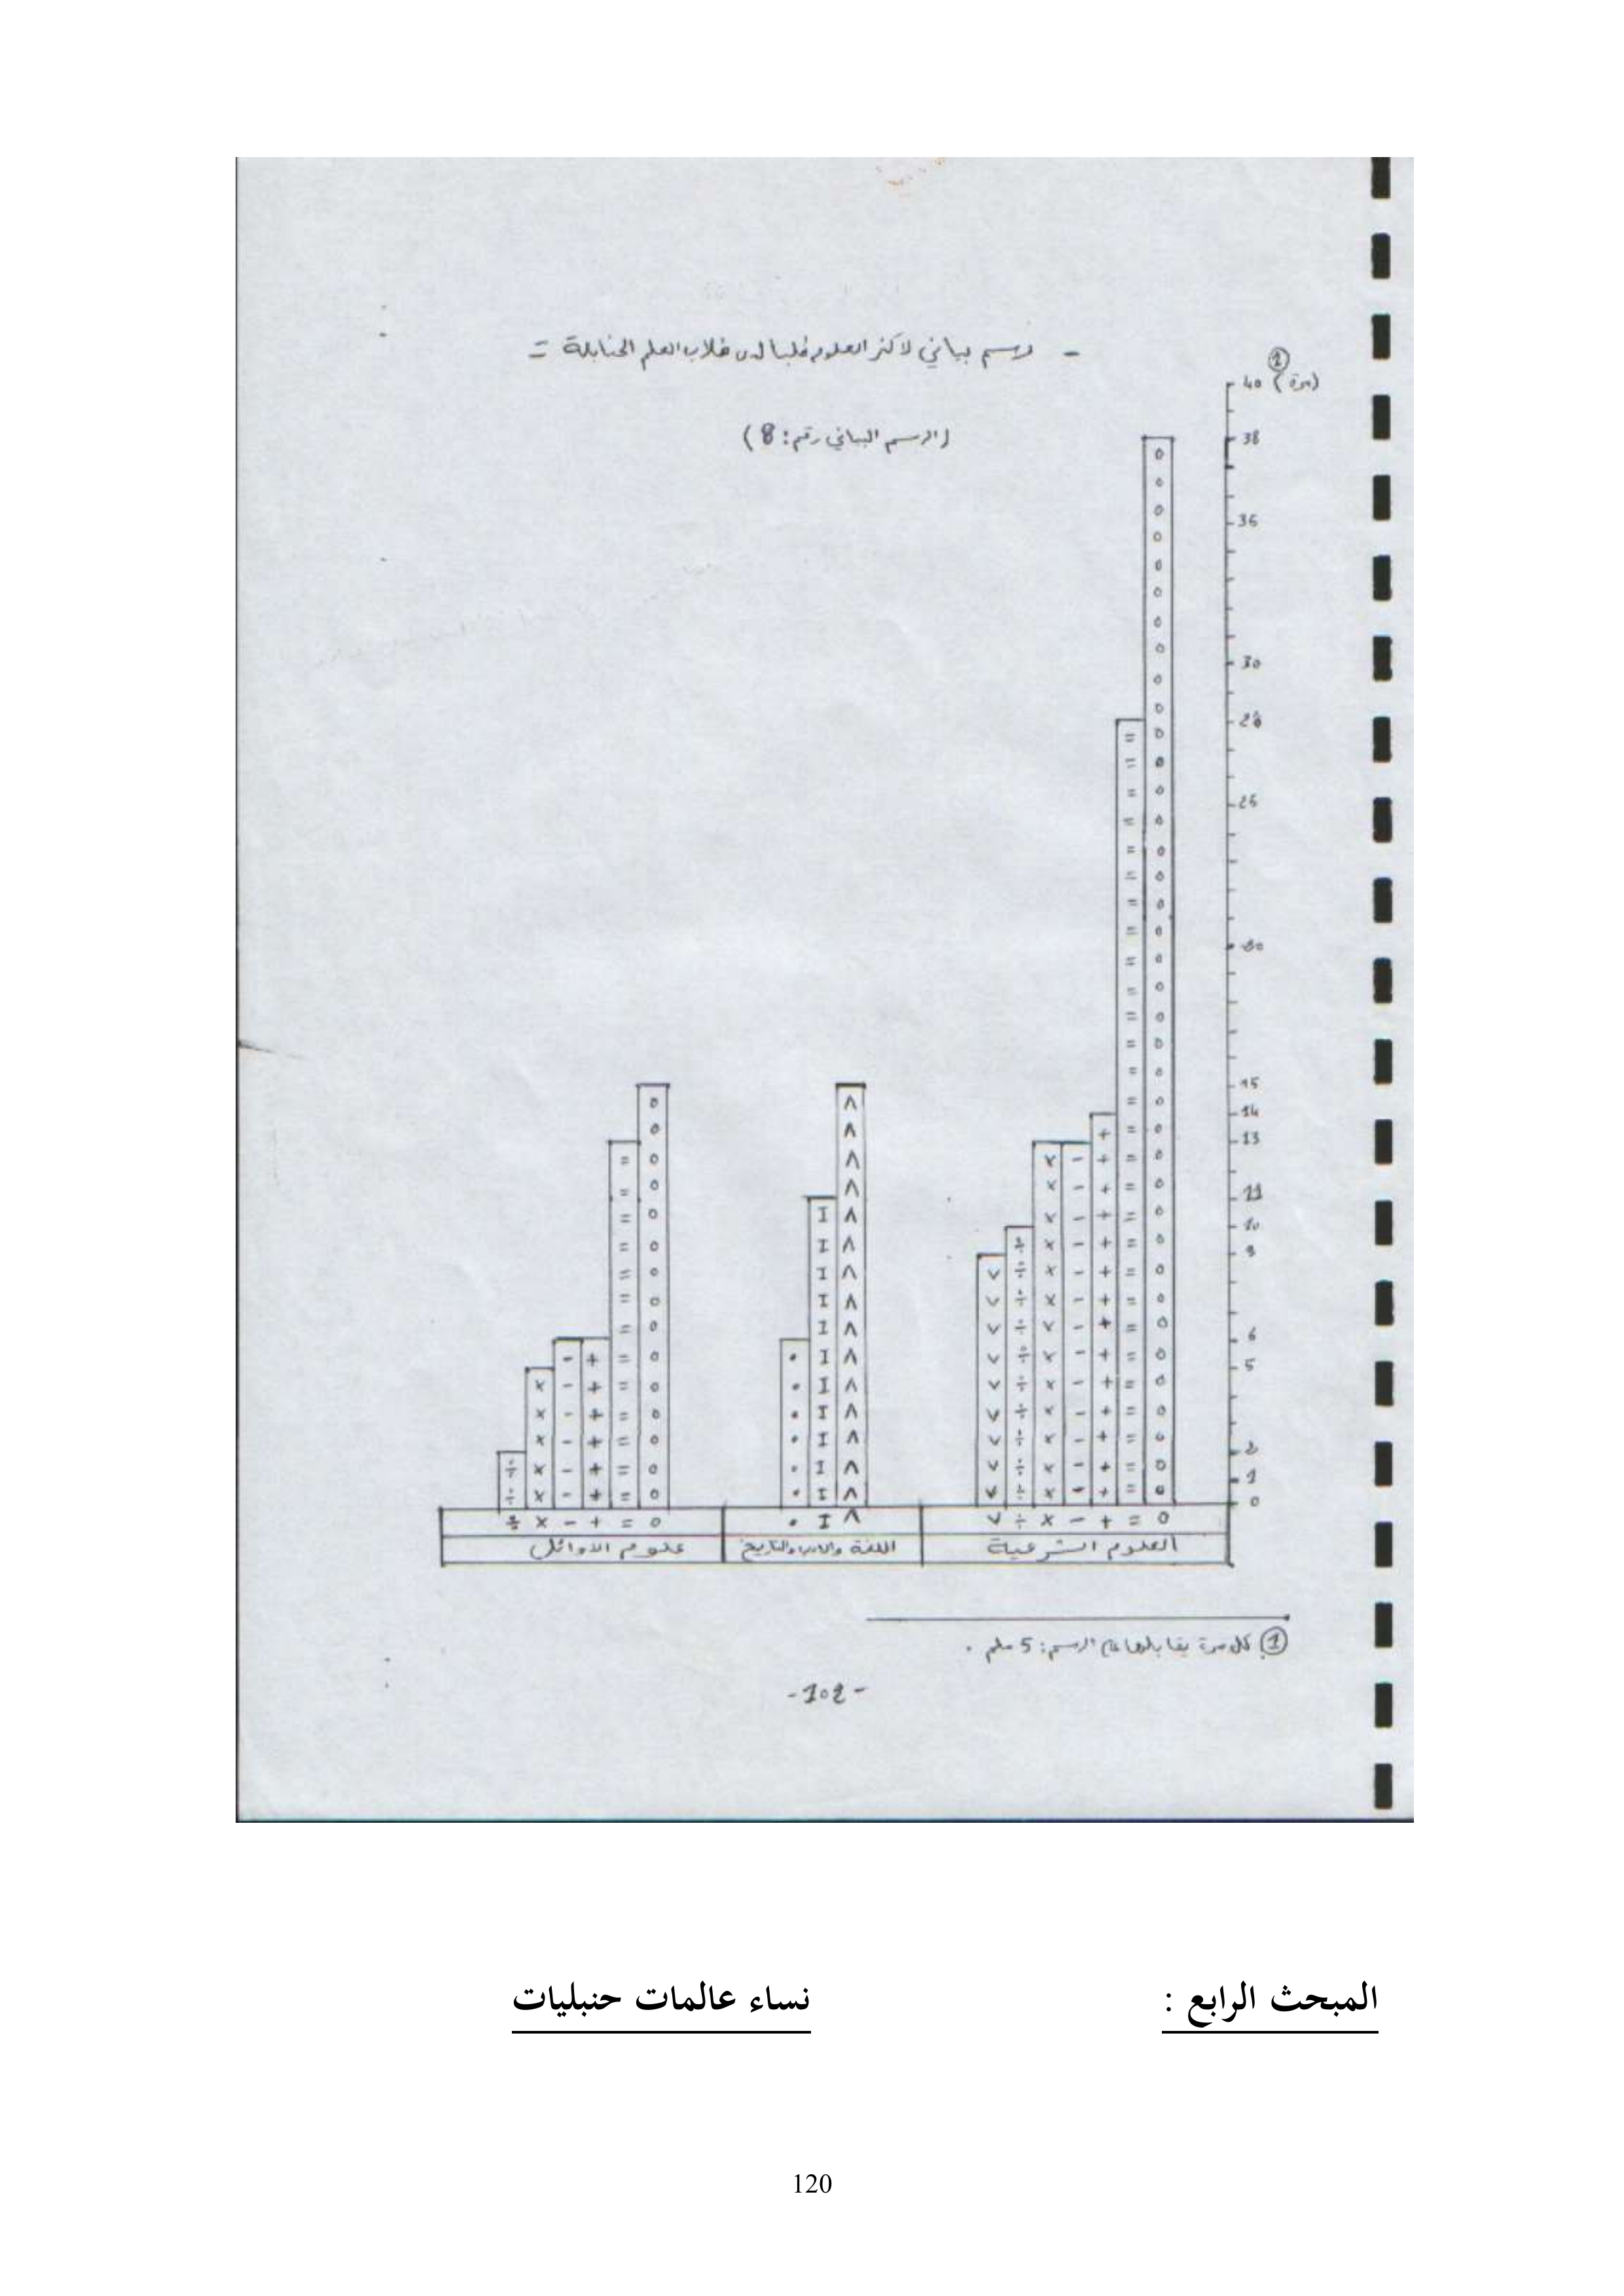 - رسم بياني لأكثر العلوم طلبا لدى طلاب العلم الحنابلة =
(الرسم البياني رقم: 8)
(مرة) ①
40
38
36
30
28
25
20
15
14
13
11
10
9
6
5
2
1
0
o = + - × ÷ ∨
∧ I •
o = + - × ÷
العلوم الشرعية
اللغة والادب والتاريخ
علوم الاوائل
① كل مرة يقابلها في الرسم: 5 ملم .
-102-
المبحث الرابع : نساء عالمات حنبليات
120